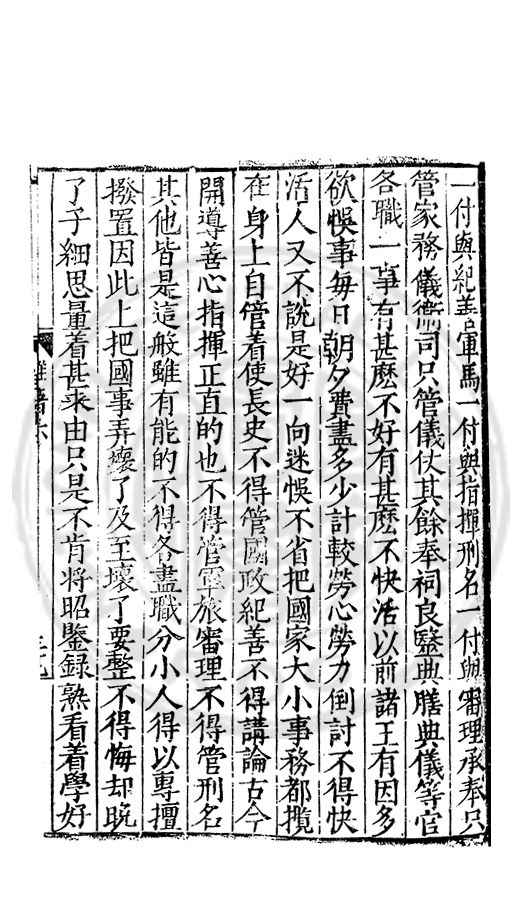 一付與紀善軍馬一付與指揮刑名一付與審理承奉只
管家務儀衛司只管儀仗其餘奉祠良醫典膳典儀等官
各職一事有甚麽不好有甚麽不快活以前諸王有因多
欲悞事每日朝夕費盡多少計較勞心勞力倒討不得快
活人又不說是好一向迷悞不省把國家大小事務都攬
在身上自管着使長史不得管國政紀善不得講論古今
開導善心指揮正直的也不得管軍旅審理不得管刑名
其他皆是這般雖有能的不得各盡職分小人得以專擅
撥置因此上把國事弄壞了及至壞了要整不得悔却晚
了子細思量着甚來由只是不肯將昭鑒錄熟看着學好